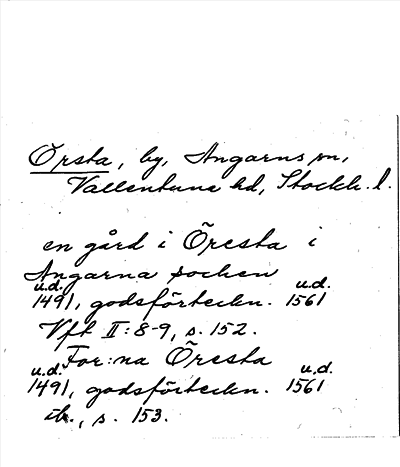 Örsta, by, Angarns sn,
Vallentuna hd, Stockh. l.
en gård i Öresta i
Angarna sochen
u.d. 1491, godsförteckn. u.d. 1561
Vft II:8-9, s. 152.
For:na Öresta
u.d. 1491, godsförteckn. u.d. 1561
ib., s. 153.